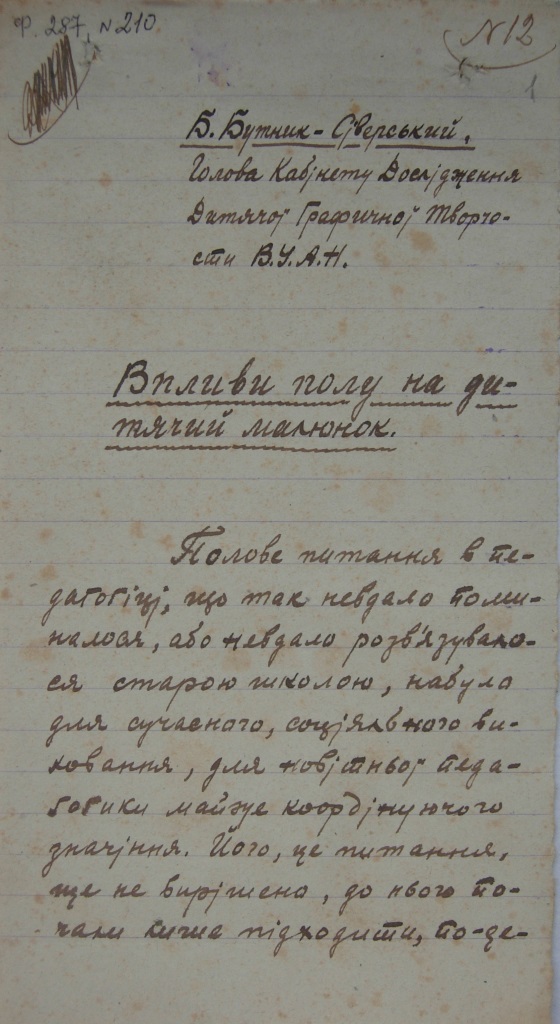 Ф. 287, N 210
N 12
1
Б. Бутник-Сіверський,
Голова Кабінету Дослідження
Дитячої Графичної Творчо-
сти В.У.А.Н.
Впливи полу на ди-
тячий малюнок.
Полове питання в пе-
даґоґіці, що так невдало поми-
налося, або невдало розв'язувало-
ся старою школою, набула
для сучасного, соціяльного ви-
ховання, для новітньої педа-
ґоґики майже коордінуючого
значіння. Його, це питання,
ще не вирішено, до нього по-
чали лише підходити, по-де-